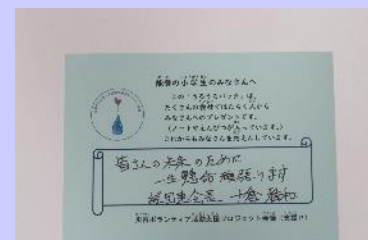 の小学生のみなさんへ
この「うるうるパック」は、
たくさんの会社ではたらく人から
みなさんへのプレゼントです。
(ノートやえんぴつが入っています。)
これからもみなさんを応えんしています。
皆さんの未来のために
一生懸命頑張ります
経団連会長 十倉雅和
災害ボランティア活動支援プロジェクト会議(支援P)